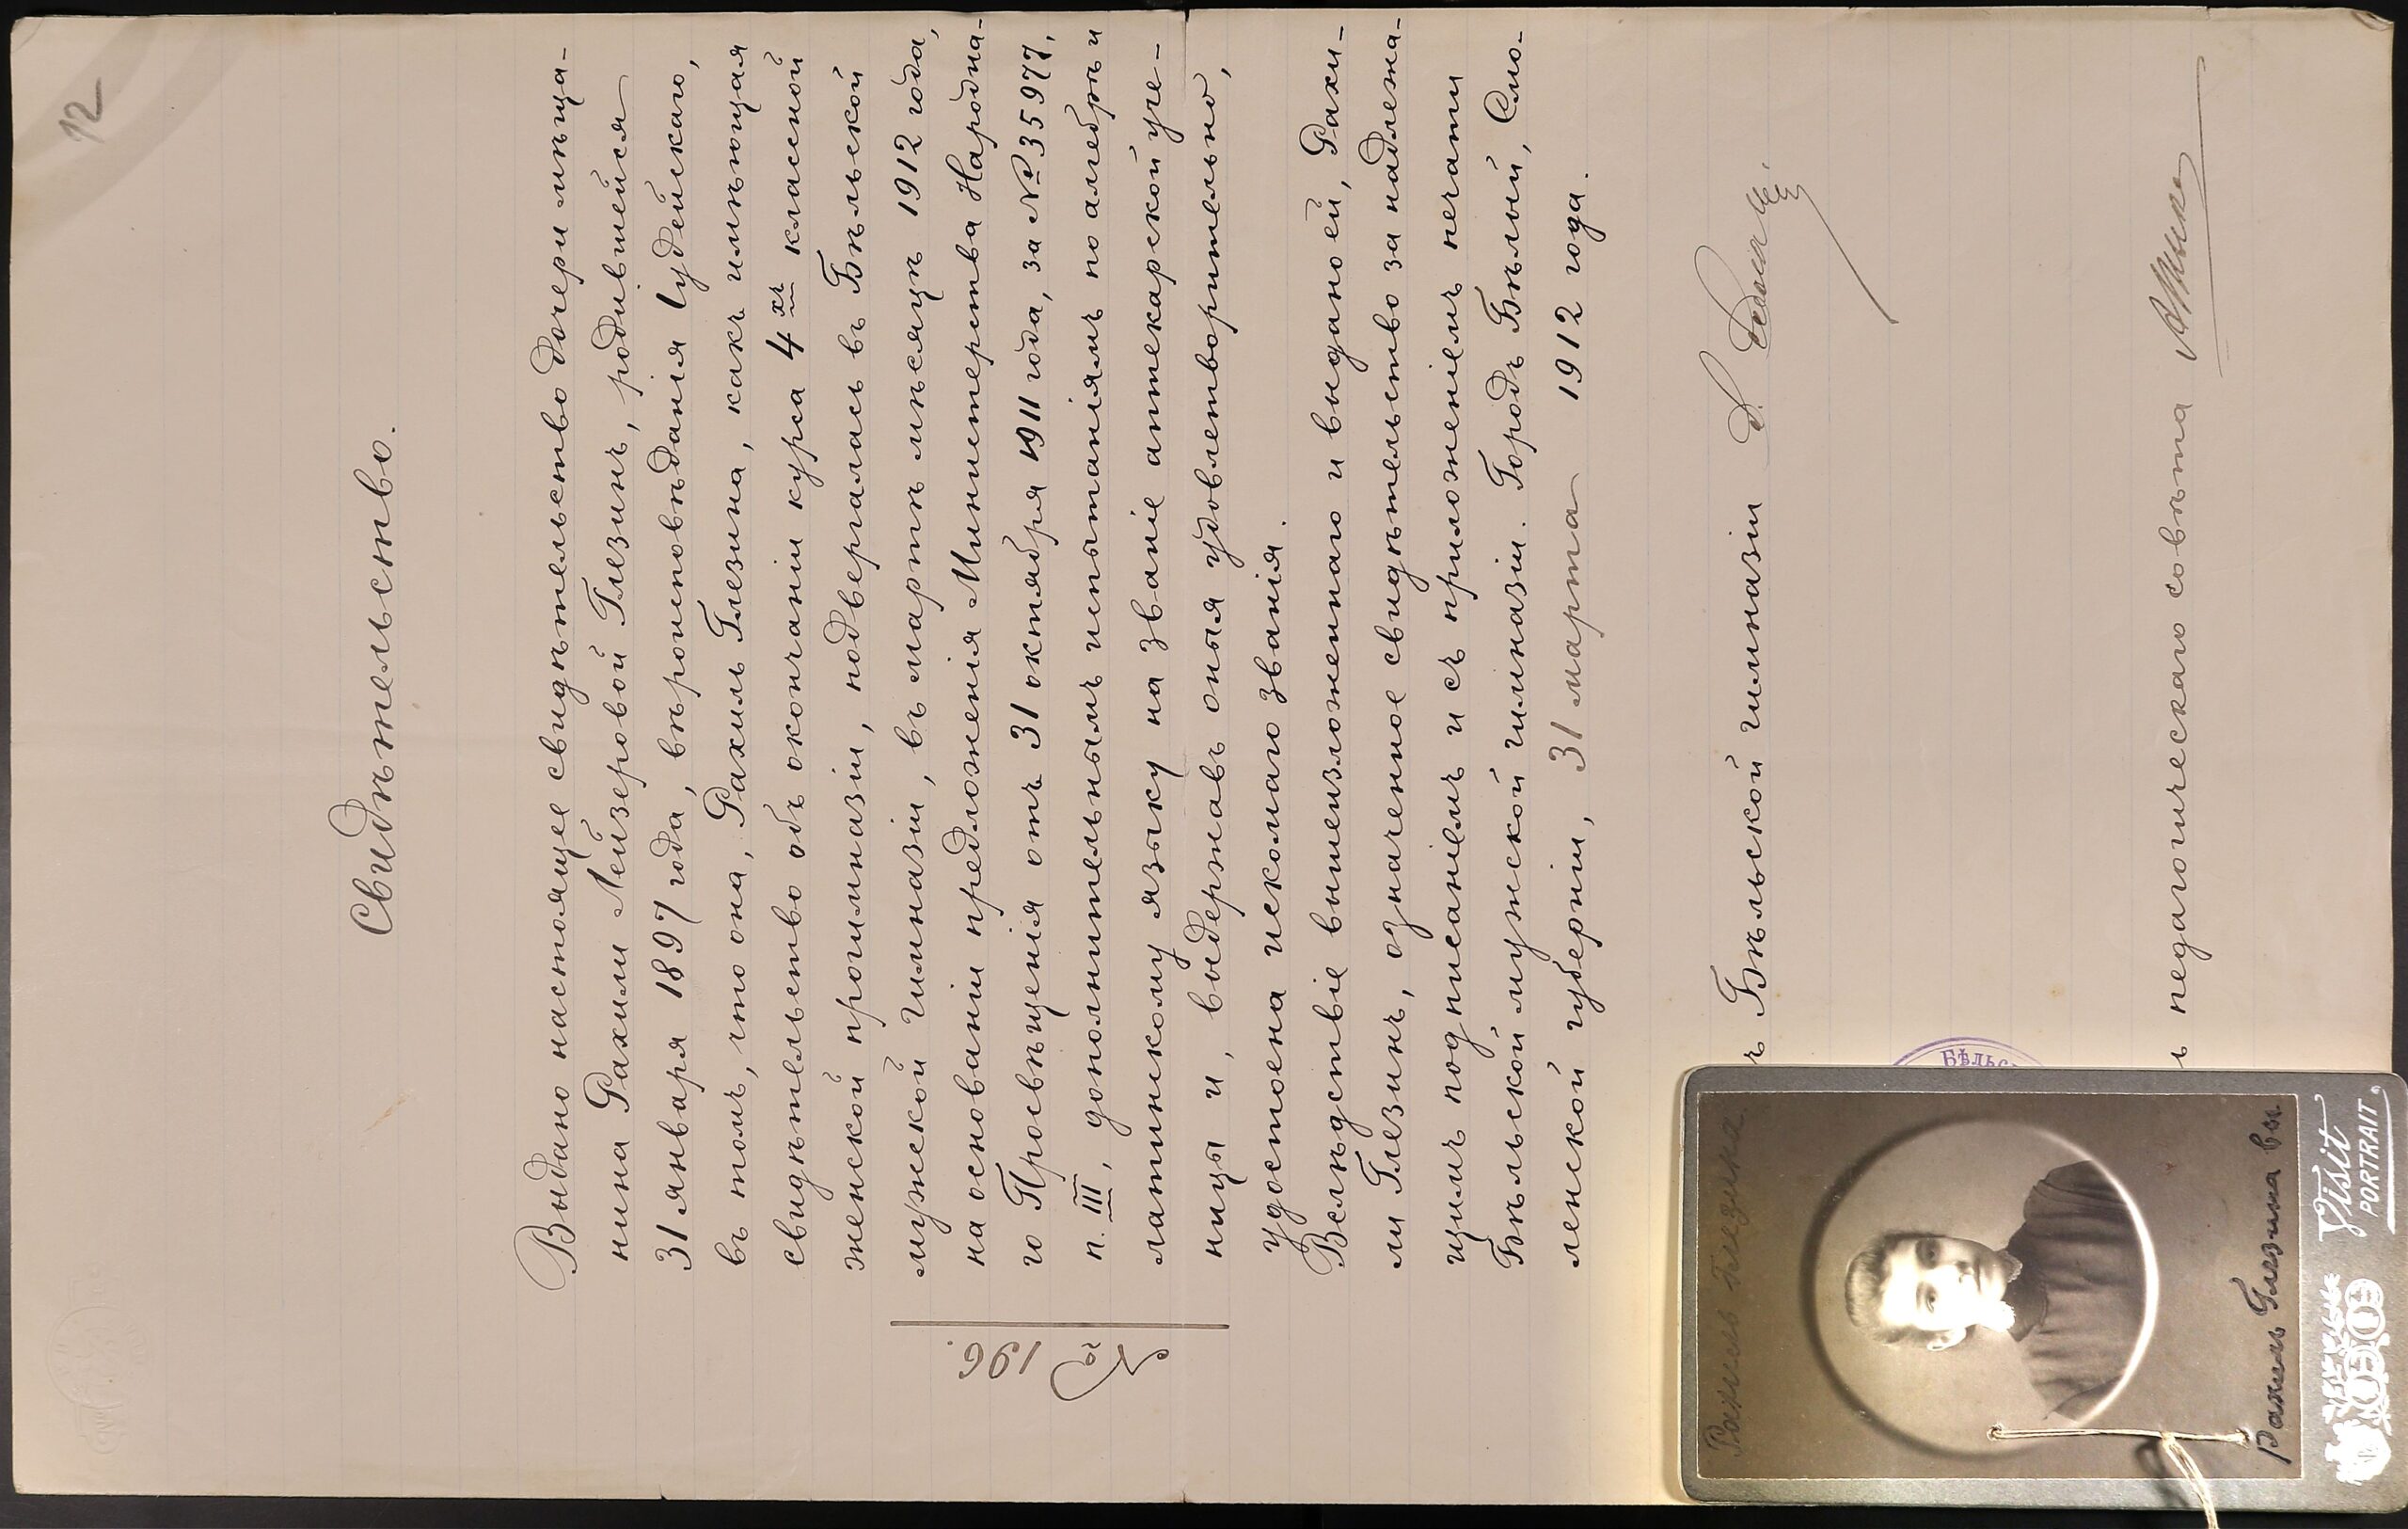 12
Свидѣтельство.
Выдано настоящее свидѣтельство дочери мѣща-
нина Рахили Лейзеровой Глезинъ, родившейся
31 января 1897 года, вѣроисповѣданія Іудейскаго,
въ томъ, что она, Рахиль Глезина, какъ имѣющая
свидѣтельство объ окончаніи курса 4хъ классной
женской прогимназіи, подвергалась въ Бѣльской
мужской гимназіи, въ мартѣ мѣсяцѣ 1912 года,
на основаніи предложенія Министерства Народна-
го Просвѣщенія отъ 31 октября 1911 года, за № 35977,
п. III, дополнительнымъ испытаніямъ по алгебрѣ и
латинскому языку на званіе аптекарской уче-
ницы и, выдержавъ оныя удовлетворительно,
удостоена искомаго званія.
Вслѣдствіе вышеизложеннаго и выдано ей, Рахи-
ли Глезинъ, означенное свидѣтельство за надлежа-
щимъ подписаніемъ и съ приложеніемъ печати
Бѣльской мужской гимназіи. Городъ Бѣлый, Смо-
ленской губерніи, 31 марта 1912 года.
№
196.
ъ Бѣльской гимназіи
БѢЛЬС
ь педагогическаго совѣта
Рахиль Глезина
Рахиль Глезина
Visit
PORTRAIT